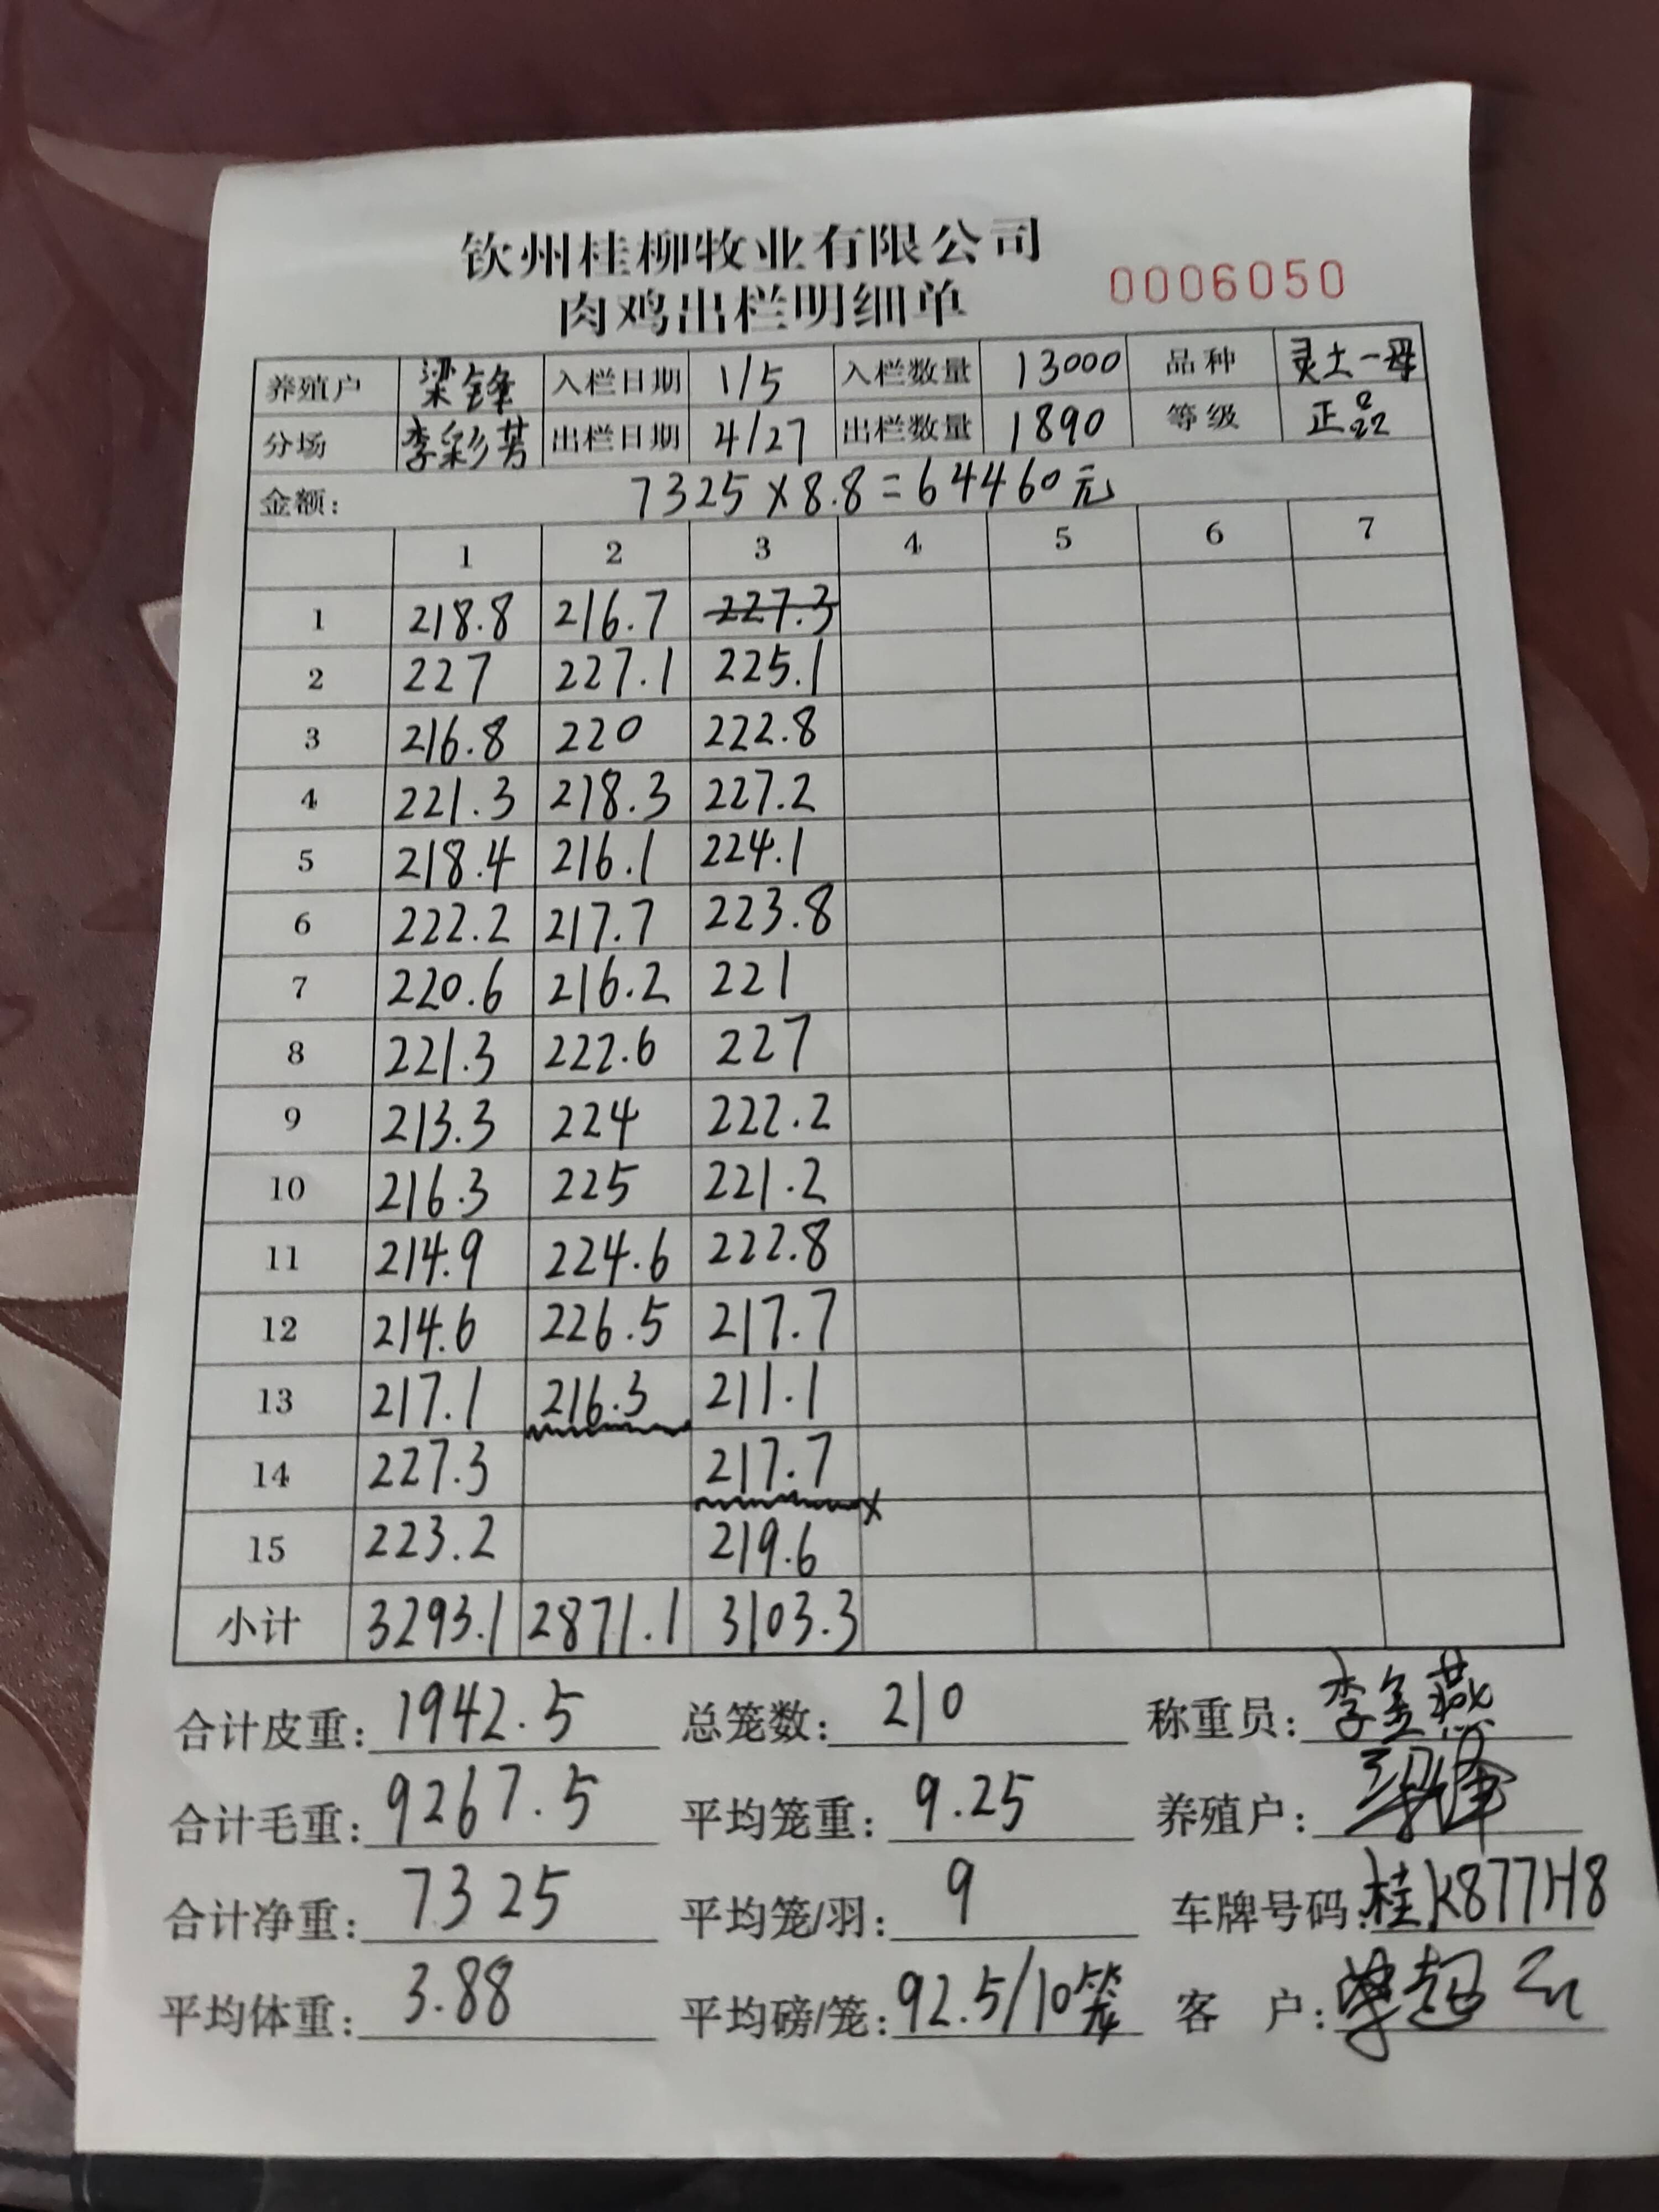 钦州桂柳牧业有限公司
肉鸡出栏明细单 0006050
养殖户 梁锋 入栏日期 1/5 入栏数量 13000 品种 灵土一母
分场 李彩芳 出栏日期 4/27 出栏数量 1890 等级 正品
金额: 7325×8.8=64460元
1 2 3 4 5 6 7
1 218.8 216.7 227.3
2 227 227.1 225.1
3 216.8 220 222.8
4 221.3 218.3 227.2
5 218.4 216.1 224.1
6 222.2 217.7 223.8
7 220.6 216.2 221
8 221.3 222.6 227
9 213.3 224 222.2
10 216.3 225 221.2
11 214.9 224.6 222.8
12 214.6 226.5 217.7
13 217.1 216.3 211.1
14 227.3 217.7 x
15 223.2 219.6
小计 3293.1 2871.1 3103.3
合计皮重: 1942.5 总笼数: 210 称重员: 李金燕
合计毛重: 9267.5 平均笼重: 9.25 养殖户:
合计净重: 7325 平均笼/羽: 9 车牌号码: 桂K877H8
平均体重: 3.88 平均磅/笼: 92.5/10笼 客 户: